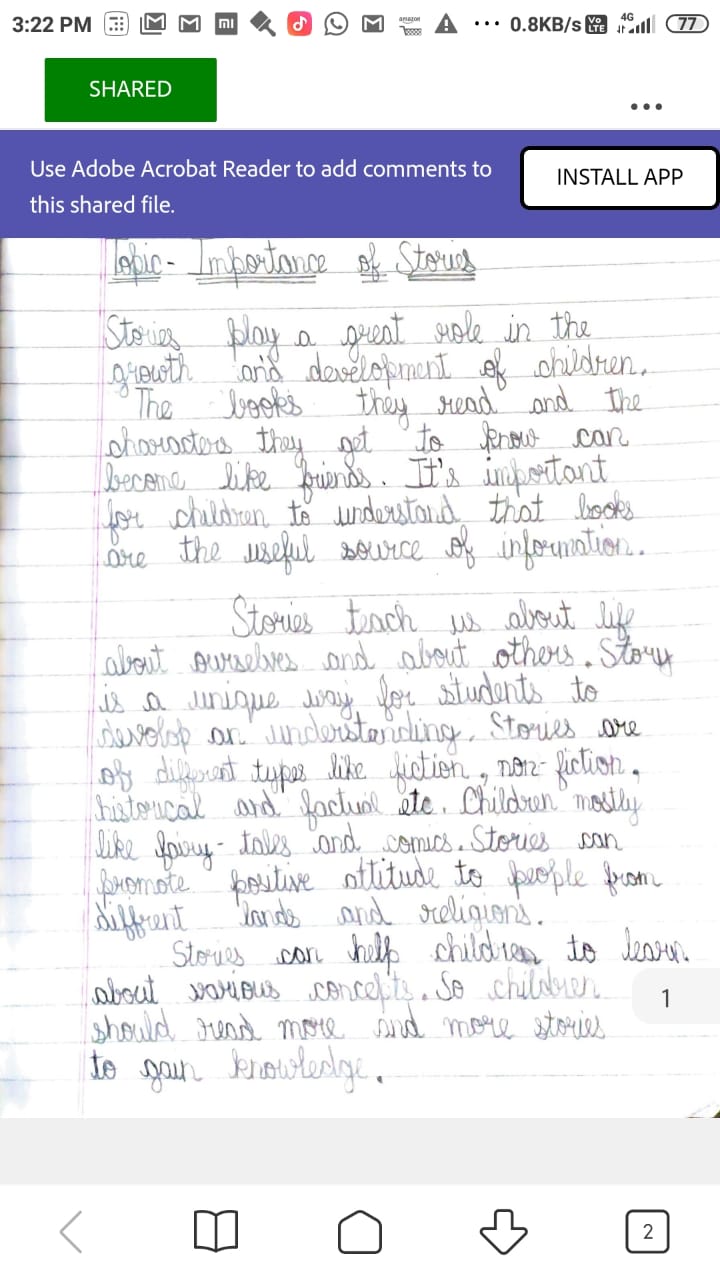 3:22 PM
0.8KB/s
Vo LTE
4G
77
SHARED
Use Adobe Acrobat Reader to add comments to
this shared file.
INSTALL APP
Topic- Importance of Stories
Stories play a great role in the
growth and development of children.
The books they read and the
characters they get to know can
become like friends. It's important
for children to understand that books
are the useful source of information.
Stories teach us about life
about ourselves and about others. Story
is a unique way for students to
develop an understanding. Stories are
of different types like fiction, non-fiction,
historical and factual etc. Children mostly
like fairy-tales and comics. Stories can
promote positive attitude to people from
diffrent lands and religions.
Stories can help children to learn
about various concepts. So children
should read more and more stories
to gain knowledge.
1
2